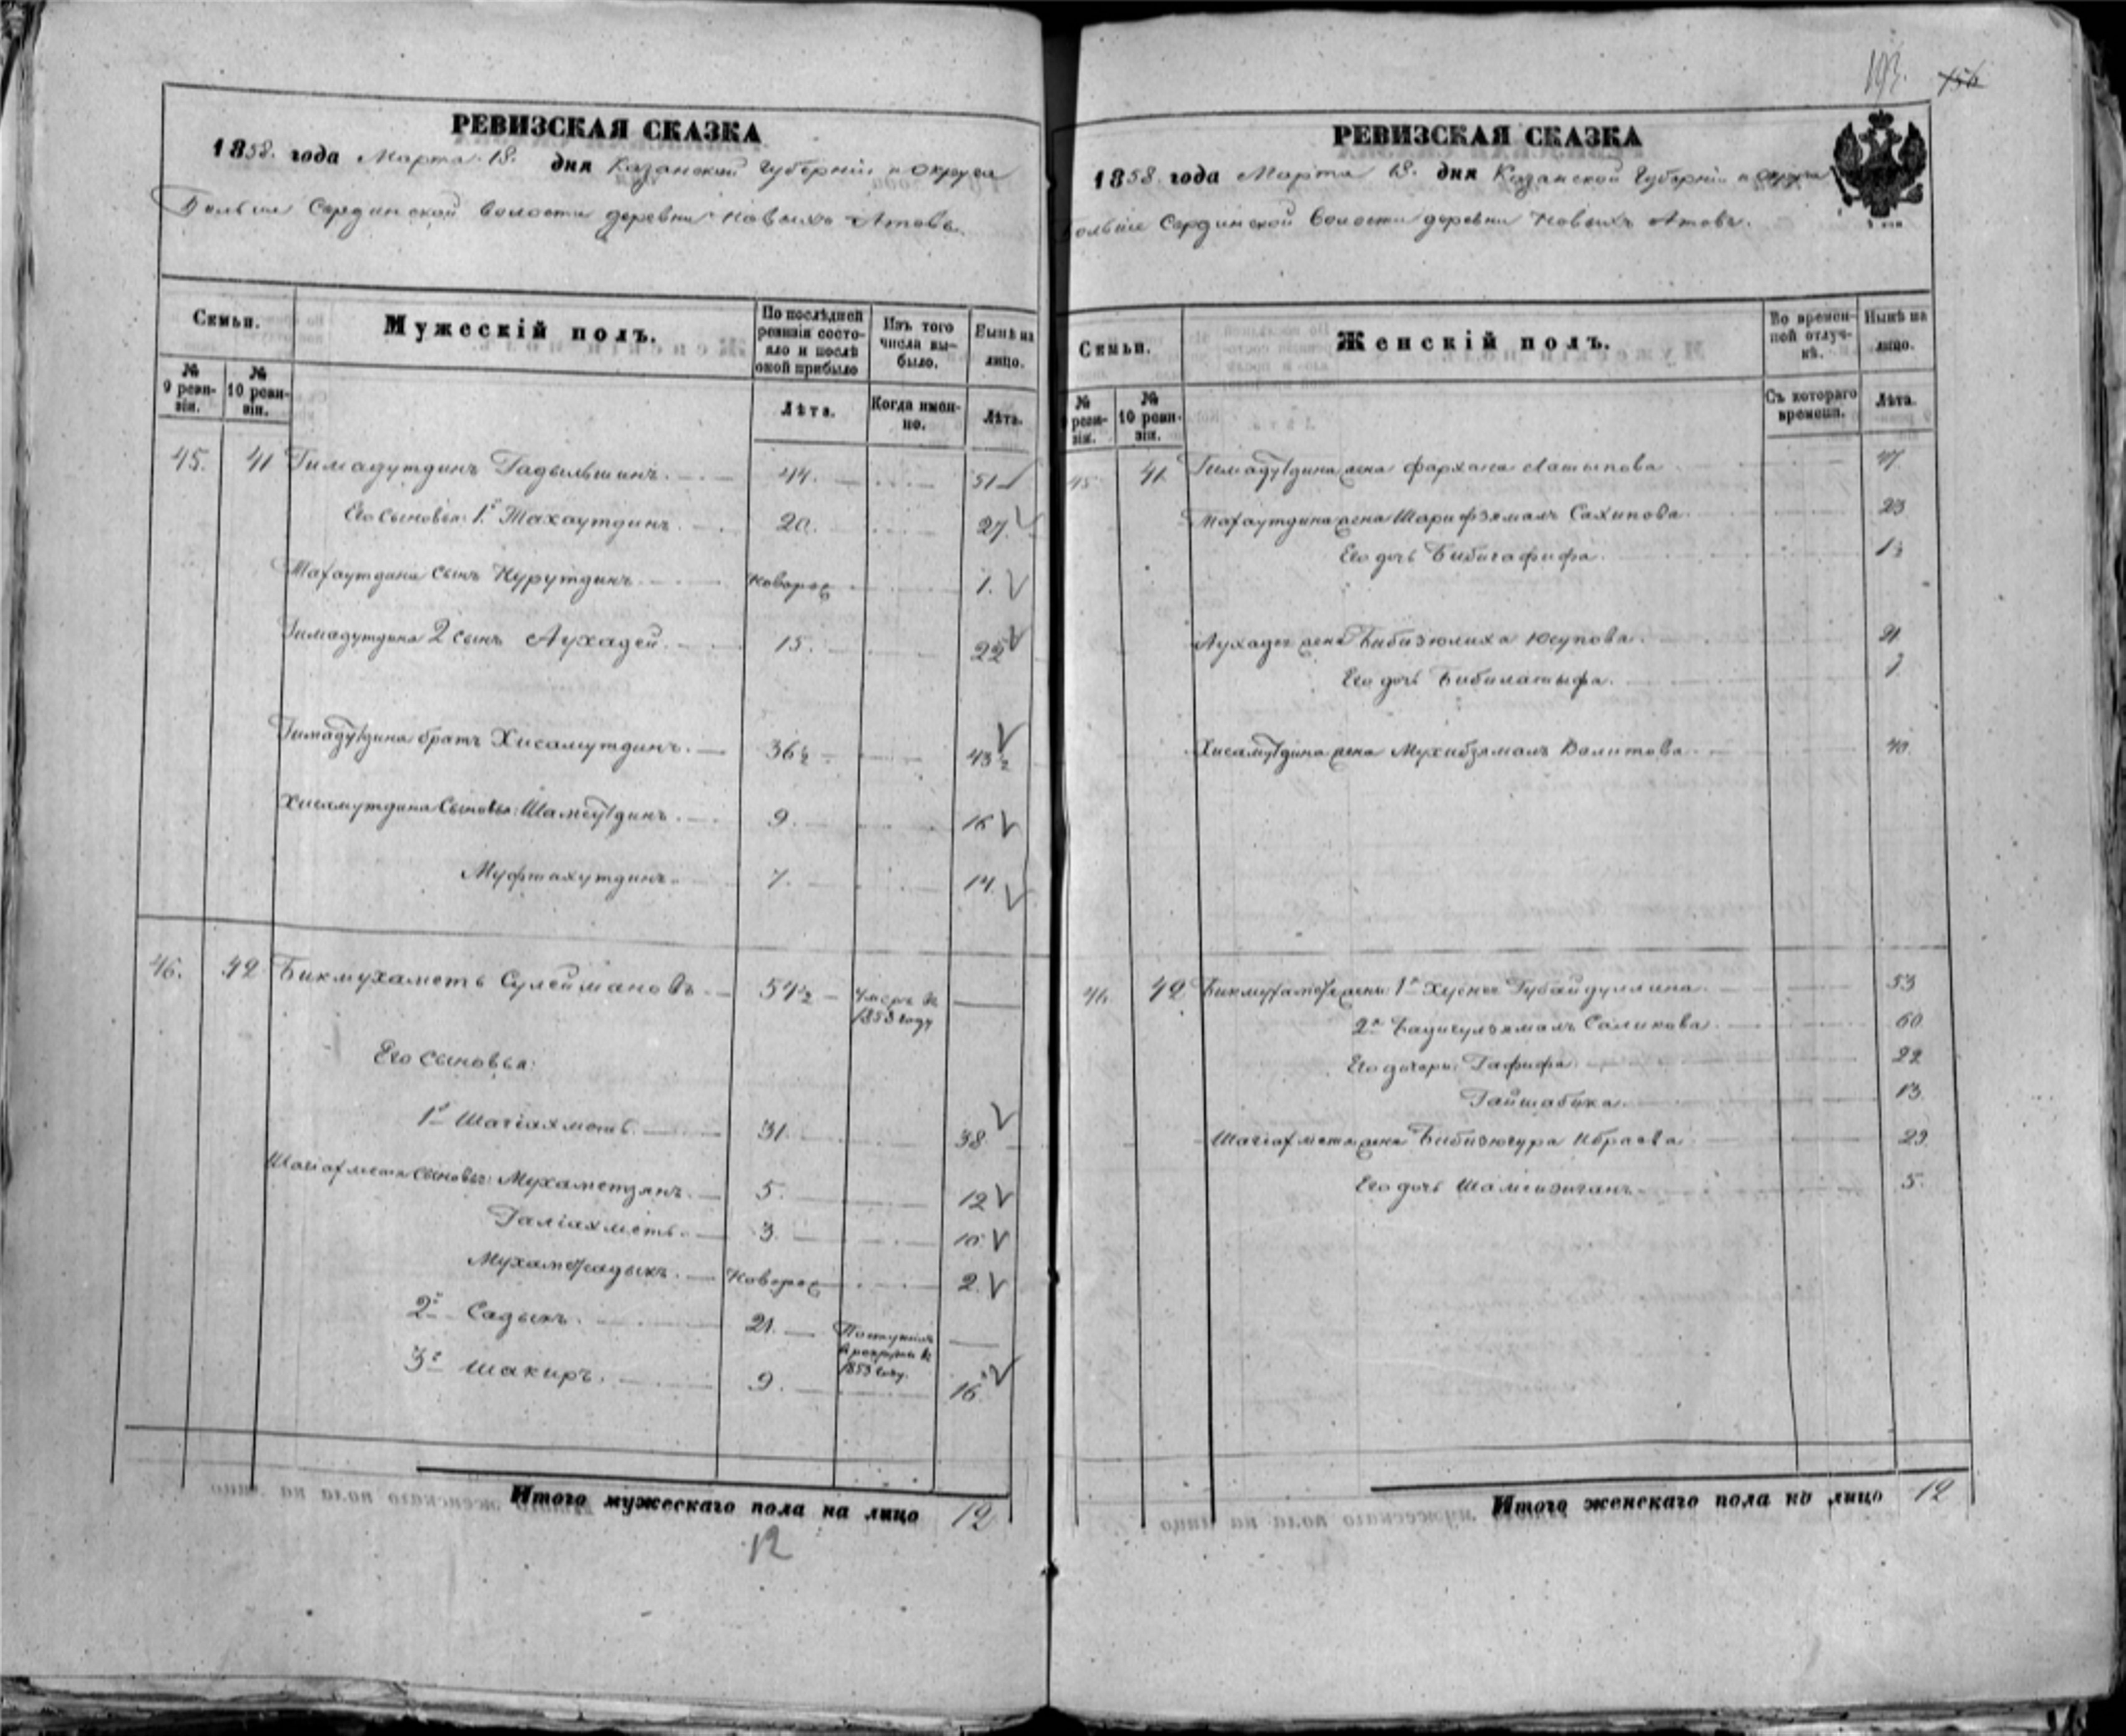 193. 156
РЕВИЗСКАЯ СКАЗКА
1858. года Марта 18. дня Казанской Губерніи и округа
Больше Сердинской волости деревни Новыхъ Атовъ.
Семьи.
Мужескій полъ.
По послѣдней ревизіи состояло и послѣ оной прибыло
Изъ того числа выбыло.
Нынѣ на лицо.
№ 9 ревизіи.
№ 10 ревизіи.
Лѣта.
Когда именно.
Лѣта.
45. 41 Гимадутдинъ Гадыльшинъ. 44. 51
Его сыновья: 1й Махаутдинъ. 20. 27.
Махаутдина сынъ Нурутдинъ. Новорож 1.
Гимадутдина 2 сынъ Аухадей. 15. 22
Гимадутдина братъ Хисамутдинъ. 36½ 43½
Хисамутдина Сыновья: Шамсутдинъ. 9. 16
Муфтахутдинъ. 7. 14.
46. 42 Бикмухаметь Сулеймановъ. 54½ Умеръ въ 1853 году
Его сыновья:
1й Шагіахметь. 31. 38.
Шагіахметя сыновья: Мухаметзянъ. 5. 12
Галіахметь. 3. 10.
Мухаметсадыкъ. Новорож 2.
2й Садыкъ. 21. Поступилъ въ рекруты въ 1853 году.
3й Шакиръ. 9. 16.
Итого мужескаго пола на лицо 12
12
РЕВИЗСКАЯ СКАЗКА
1858 года Марта 18. дня Казанской Губерніи и округа
Больше Сердинской Волости деревни Новыхъ Атовъ.
Семьи.
Женскій полъ.
Во временной отлучкѣ.
Нынѣ на лицо.
№ ревизіи.
№ 10 ревизіи.
Съ котораго времени.
Лѣта.
45. 41. Гимадутдина жена Фархана Латыпова 47.
Махаутдина жена Шарифзямалъ Сахипова. 23
Его дочь Бибигафифа. 1½
Аухадея жена Бибизюлиха Юсупова. 21
Его дочь Бибилатыфа. 1
Хисамутдина жена Мухибзямалъ Валитова. 40.
46. 42 Бикмухаметя жены: 1я Хусна Губайдуллина. 53
2я Бадигулзямалъ Саликова. 60.
Его дочери: Гафифа. 22
Гайшабика. 13.
Шагіахметя жена Бибизюгура Ибраева. 29.
Его дочь 5.
Итого женскаго пола на лицо 12